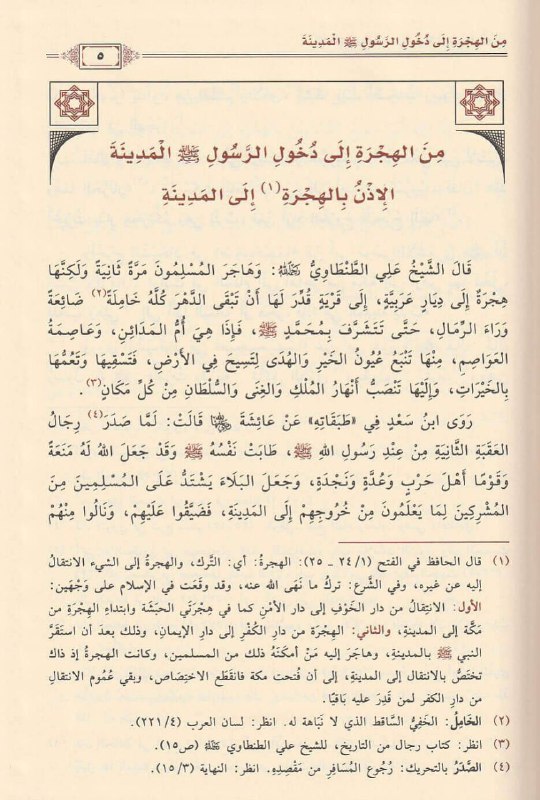 مِنَ الهِجْرَةِ إِلَى دُخُولِ الرَّسُولِ ﷺ الْمَدِينَةَ
٥
مِنَ الهِجْرَةِ إِلَى دُخُولِ الرَّسُولِ ﷺ الْمَدِينَةَ
الإِذْنُ بِالهِجْرَةِ(١) إِلَى المَدِينَةِ
قَالَ الشَّيْخُ عَلِي الطَّنْطَاوِيُّ رَحِمَهُ اللَّهُ: وَهَاجَرَ الْمُسْلِمُونَ مَرَّةً ثَانِيَةً وَلَكِنَّهَا
هِجْرَةٌ إِلَى دِيَارٍ عَرَبِيَّةٍ، إِلَى قَرْيَةٍ قُدِّرَ لَهَا أَنْ تَبْقَى الدَّهْرَ كُلَّهُ خَامِلَةً(٢) ضَائِعَةً
وَرَاءَ الرِّمَالِ، حَتَّى تَتَشَرَّفَ بِمُحَمَّدٍ ﷺ، فَإِذَا هِيَ أُمُّ المَدَائِنِ، وَعَاصِمَةُ
العَوَاصِمِ، مِنْهَا تَنْبَعُ عُيُونُ الخَيْرِ وَالهُدَى لِتَسِيحَ فِي الأَرْضِ، فَتَسْقِيهَا وَتَعُمُّهَا
بِالخَيْرَاتِ، وَإِلَيْهَا تَنْصَبُّ أَنْهَارُ المُلْكِ وَالغِنَى وَالسُّلْطَانِ مِنْ كُلِّ مَكَانٍ(٣).
رَوَى ابنُ سَعْدٍ فِي «طَبَقَاتِهِ» عَنْ عَائِشَةَ رضي الله عنها قَالَتْ: لَمَّا صَدَرَ(٤) رِجَالُ
العَقَبَةِ الثَّانِيَةِ مِنْ عِنْدِ رَسُولِ اللهِ ﷺ، طَابَتْ نَفْسُهُ ﷺ وَقَدْ جَعَلَ اللهُ لَهُ مَنَعَةً
وَقَوْمًا أَهْلَ حَرْبٍ وَعُدَّةٍ وَنَجْدَةٍ، وَجَعَلَ البَلَاءَ يَشْتَدُّ عَلَى الْمُسْلِمِينَ مِنَ
المُشْرِكِينَ لِمَا يَعْلَمُونَ مِنْ خُرُوجِهِمْ إِلَى المَدِينَةِ، فَضَيَّقُوا عَلَيْهِمْ، وَنَالُوا مِنْهُمْ
(١) قال الحافظ في الفتح (١/ ٢٤ - ٢٥): الهجرةُ: أي: التَّرك، والهجرةُ إلى الشيء الانتقالُ
إليه عن غيره، وفي الشَّرع: تركُ ما نَهَى الله عنه، وقد وقَعَت في الإسلام على وَجْهَين:
الأول: الانتِقالُ من دار الخَوْفِ إلى دار الأمْنِ كما في هِجْرَتَي الحبَشَة وابتداءِ الهِجْرَةِ من
مَكَّة إلى المدينة، والثاني: الهِجْرَة من دارِ الكُفْرِ إلى دارِ الإيمانِ، وذلك بعدَ أن استَقَرَّ
النبي ﷺ بالمدينةِ، وهاجَرَ إليه مَنْ أمكَنَهُ ذلك من المسلمين، وكانت الهجرةُ إذ ذاك
تختَصُّ بالانتقال إلى المدينة، إلى أن فُتحت مكة فانقَطَع الاختِصَاص، وبقي عُمُوم الانتقالِ
من دارِ الكفر لمن قَدِرَ عليه بَاقيًا.
(٢) الخَامِلُ: الخَفِيُّ السَّاقط الذي لا نَبَاهة له. انظر: لسان العرب (٤/ ٢٢١).
(٣) انظر: كتاب رجال من التاريخ، للشيخ علي الطنطاوي رَحِمَهُ اللَّهُ (ص١٥).
(٤) الصَّدَرُ بالتحريك: رُجوع المُسَافِر من مَقْصِدِهِ. انظر: النهاية (٣/ ١٥).